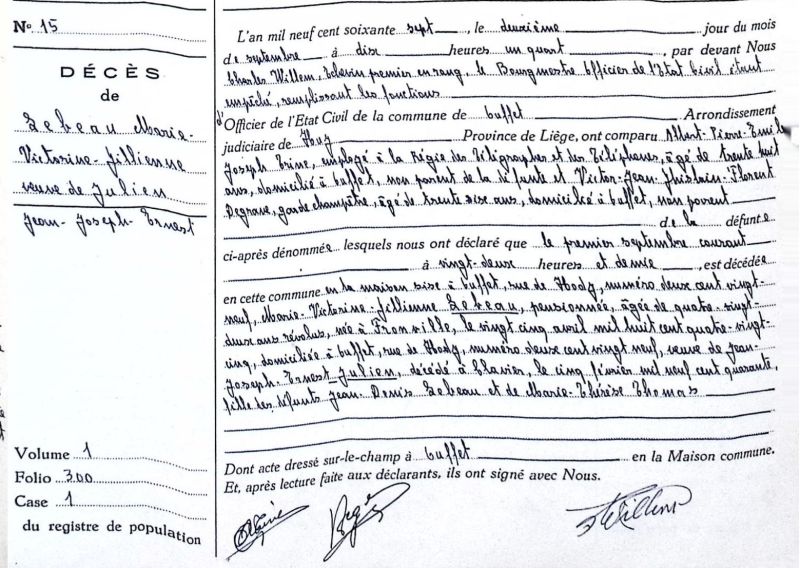 N° 15
DÉCÈS
de
Lebeau Marie-
Victorine-Fillienne
veuve de Julien
Jean-Joseph-Ernest
Volume 1
Folio 300
Case 1
du registre de population
L'an mil neuf cent soixante sept, le deuxième jour du mois
de septembre à dix heures un quart, par devant Nous
Charles Willem, Echevin premier en rang, le Bourgmestre Officier de l'Etat Civil étant
empêché, remplissant les fonctions
d'Officier de l'Etat Civil de la commune de buffet Arrondissement
judiciaire de Huy Province de Liège, ont comparu Albert-Pierre-Emile
Joseph employé à la Régie des Télégraphes et des Téléphones, âgé de trente huit
ans, domicilié à buffet, non parent de la défunte et Victor-Jean-Ghislain-Florent
Degrave, garde champêtre, âgé de trente six ans, domicilié à buffet, non parent
de la défunte
ci-après dénommée lesquels nous ont déclaré que le premier septembre courant
à vingt-deux heures et demie, est décédée
en cette commune en la maison sise à buffet, rue de Hody, numéro deux cent vingt-
neuf, Marie-Victorine-Fillienne Lebeau, pensionnée, âgée de quatre-vingt-
deux ans révolus, née à Fronville, le vingt cinq avril mil huit cent quatre-vingt-
cinq, domiciliée à buffet, rue de Hody, numéro deux cent vingt neuf, veuve de Jean-
Joseph-Ernest Julien, décédé à Clavier, le cinq février mil neuf cent quarante,
fille des défunts Jean-Denis Lebeau et de Marie-Thérèse Thomas
Dont acte dressé sur-le-champ à buffet en la Maison commune.
Et, après lecture faite aux déclarants, ils ont signé avec Nous.